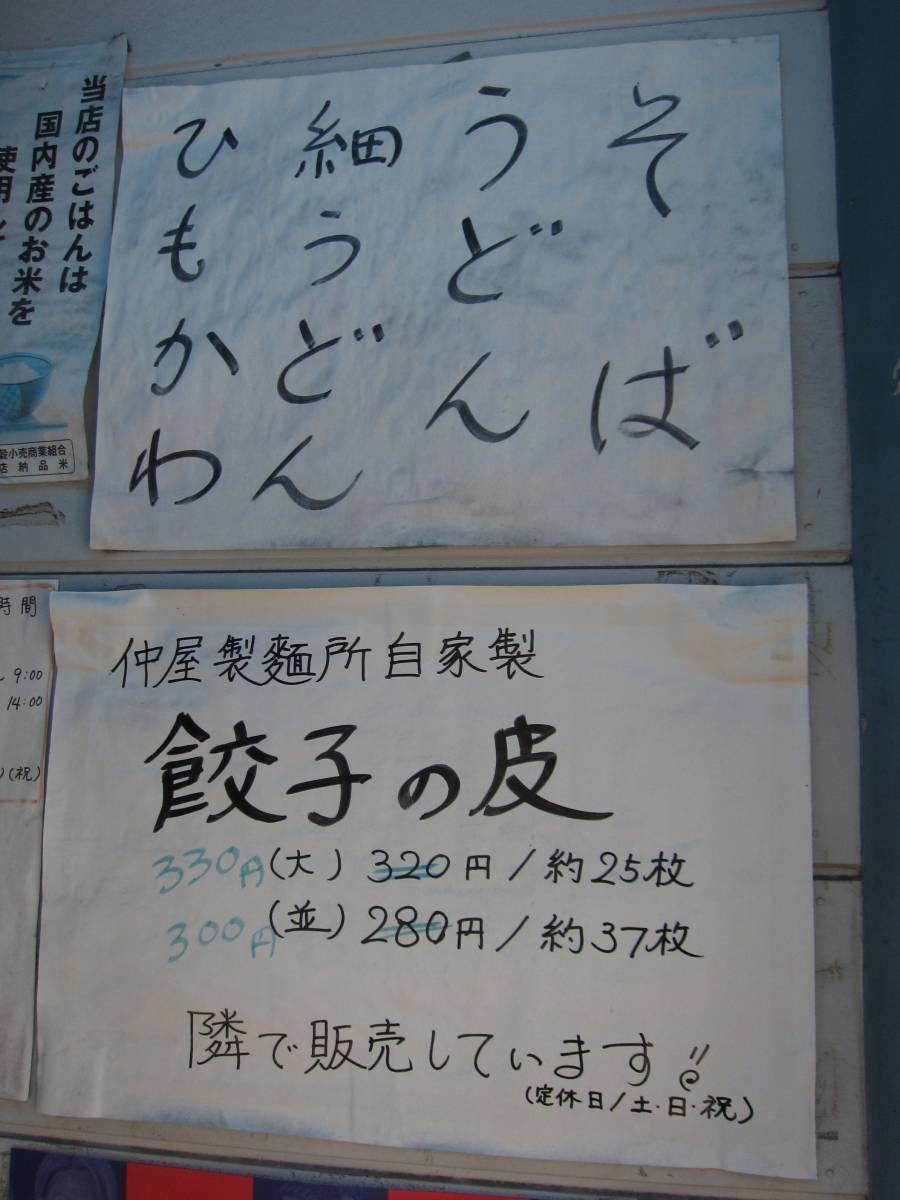 そば
うどん
細うどん
ひもかわ
当店のごはんは
国内産のお米を
使用し
穀小売商業組合
店納品米
時間
9:00
14:00
(祝)
仲屋製麺所自家製
餃子の皮
330円(大) 320円/約25枚
300円(並) 280円/約37枚
隣で販売しています!!
(定休日/土・日・祝)